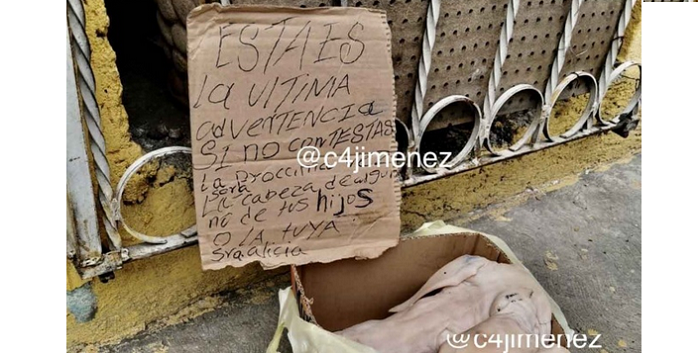 ESTA ES
la ULTIMA
adVERTENCIA
SI NO CONTESTAS
@c4jimenez
La proccima
sera
La cabeza de algu
no de tus hijos
O LA tuya
Sra alicia
@c4jimenez